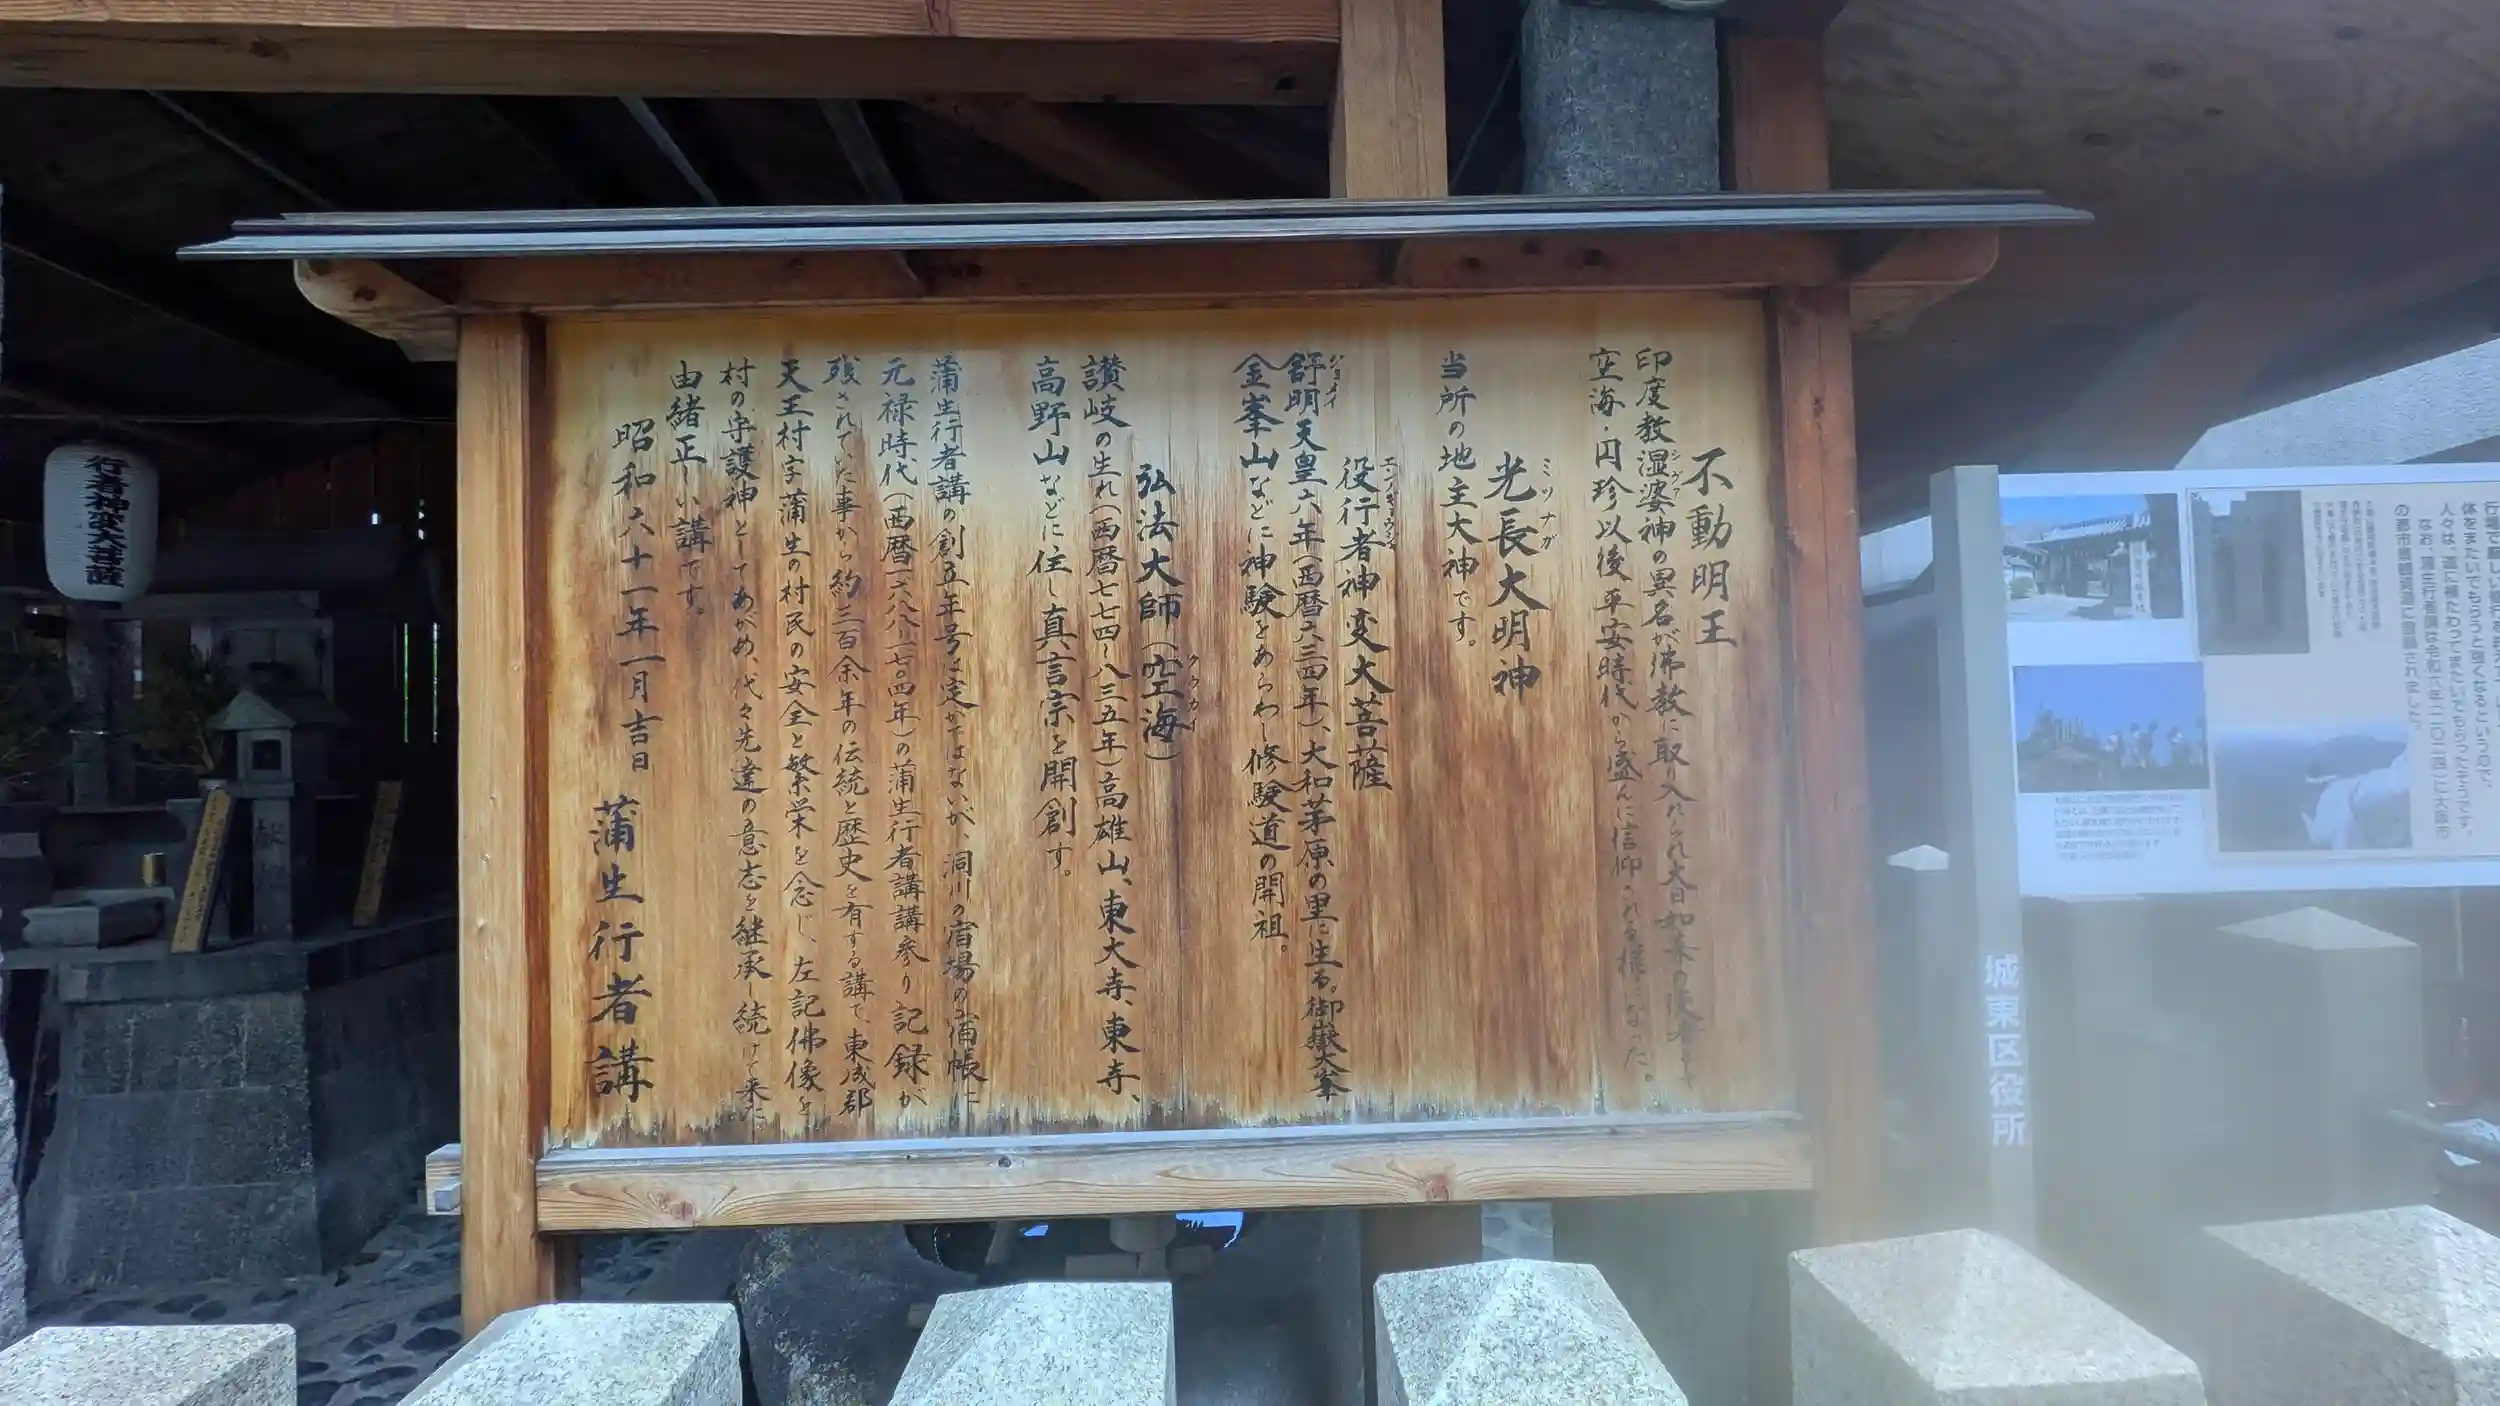 不動明王
印度教湿婆神の異名が佛教に取り入れられ大日如来の使者とさ
シヴァ
空海・円珍以後平安時代から盛んに信仰される様になった。
光長大明神
ミツナガ
当所の地主大神です。
役行者神変大菩薩
エンノギョウジャ
舒明天皇六年(西暦六三四年)、大和茅原の里に生る。御嶽大峯
ジョメイ
金峯山などに神験をあらわし修験道の開祖。
弘法大師(空海)
クウカイ
讃岐の生れ(西暦七七四〜八三五年)高雄山、東大寺、東寺、
高野山などに住し真言宗を開創す。
蒲生行者講の創立年号は定かではないが、洞川の宿場の宿帳に
元禄時代(西暦一六八八〜一七〇四年)の蒲生行者講講参り記録が
残されていた事から約三百余年の伝統と歴史を有する講で、東成郡
天王村字蒲生の村民の安全と繁栄を念じ、左記佛像を
村の守護神としてあがめ、代々先達の意志を継承し続けて来た
由緒正しい講です。
昭和六十一年一月吉日
蒲生行者講
行者神変大菩薩
城東区役所
体をまたいでもらうと強くなるというので、
人々は、道に横たわってまたいでもらったそうです。
なお、蒲生行者講は令和六年(二〇二四)に大阪市
の都市景観資源に登録されました。